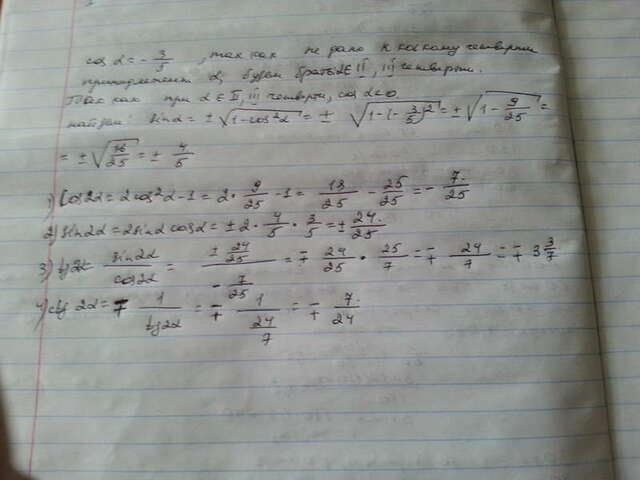 cos α = - 3/5, так как не дано к какому четверти
принадлежит α, будем брать α ∈ II, III четверти.
Так как при α ∈ II, III четверти, cos α < 0
найдем: sin α = ± √(1-cos²α) = ± √(1-(-3/5)²) = ± √(1 - 9/25) =
= ± √(16/25) = ± 4/5
1) cos2α = 2cos²α - 1 = 2 · 9/25 - 1 = 18/25 - 25/25 = - 7/25
2) sin2α = 2sinα cosα = ± 2 · 4/5 · 3/5 = ± 24/25
3) tg2α = sin2α/cos2α = (± 24/25)/(- 7/25) = ∓ 24/25 · 25/7 = ∓ 24/7 = ∓ 3 3/7
4) ctg 2α = 1/tg2α = ∓ 1/(24/7) = ∓ 7/24